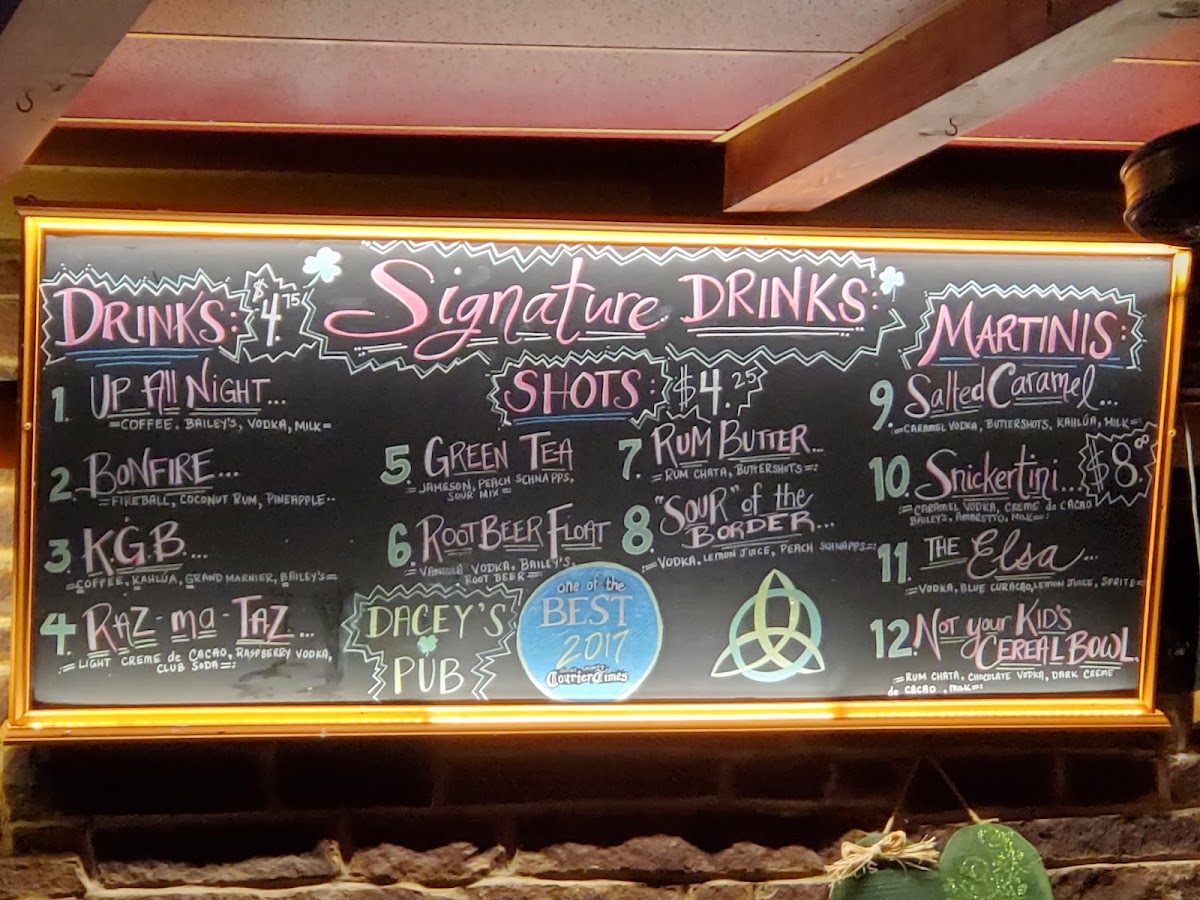 Signature DRINKS:
DRINKS: $4.75
1. UP All NIGHT...
=COFFEE, BAILEY'S, VODKA, MILK=
2. BONFIRE...
=FIREBALL, COCONUT RUM, PINEAPPLE..
3. K.G.B...
=COFFEE, KAHLÚA, GRAND MARNIER, BAILEY'S=
4. RAZ-ma-TAZ...
=LIGHT CREME de CACAO, RASPBERRY VODKA,
CLUB SODA=:
SHOTS: $4.25
5. GREEN TEA
=JAMESON, PEACH SCHNAPPS,
SOUR MIX=
6. ROOT BEER FLOAT
=VANILLA VODKA, BAILEY'S,
ROOT BEER=
7. RUM BUTTER...
=RUM CHATA, BUTTERSHOTS=:
8. "SOUR" of the
BORDER...
=VODKA, LEMON JUICE, PEACH SCHNAPPS=:
DACEY'S
PUB
one of the
BEST
2017
Courier Times
MARTINIS:
9. Salted Caramel...
=CARAMEL VODKA, BUTTERSHOTS, KAHLÚA, MILK=
10. Snickertini... $8.00
=CARAMEL VODKA, CREME de CACAO
BAILEY'S, AMARETTO, MILK=:
11. THE Elsa...
=VODKA, BLUE CURACAO, LEMON JUICE, SPRITE=
12. NOT your KID'S
CEREAL BOWL.
=RUM CHATA, CHOCOLATE VODKA, DARK CREME
de CACAO, MILK=: